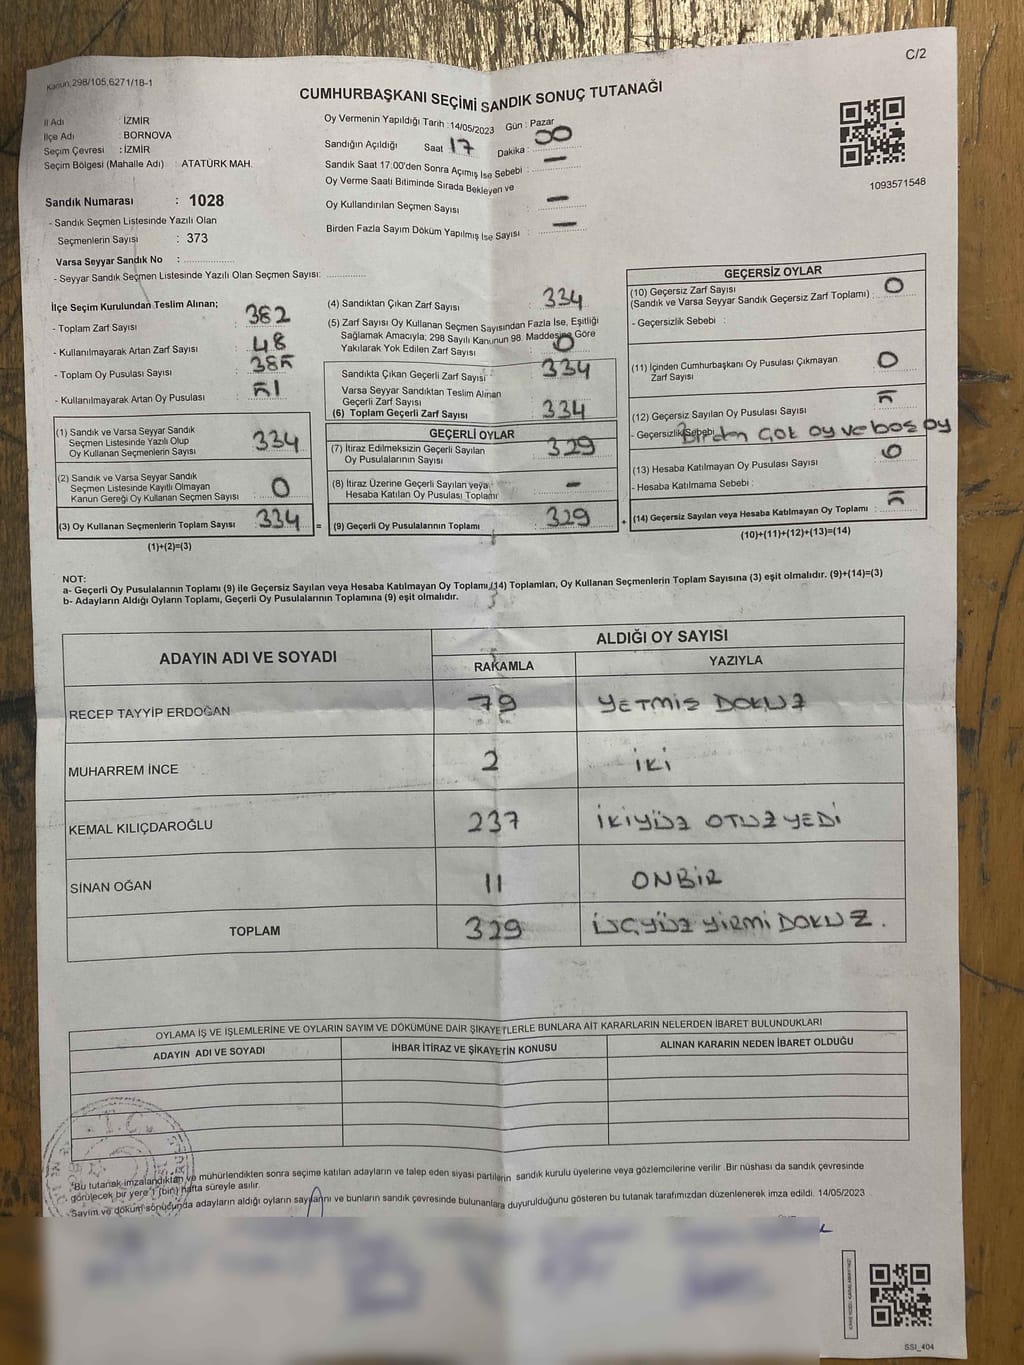 C/2
Kanun,298/105,6271/18-1
CUMHURBAŞKANI SEÇİMİ SANDIK SONUÇ TUTANAĞI
İl Adı : İZMİR
İlçe Adı : BORNOVA
Seçim Çevresi : İZMİR
Seçim Bölgesi (Mahalle Adı) : ATATÜRK MAH.
Sandık Numarası : 1028
- Sandık Seçmen Listesinde Yazılı Olan
Seçmenlerin Sayısı : 373
Varsa Seyyar Sandık No :
- Seyyar Sandık Seçmen Listesinde Yazılı Olan Seçmen Sayısı:
Oy Vermenin Yapıldığı Tarih :14/05/2023 Gün : Pazar
Sandığın Açıldığı Saat 17 Dakika : 00
Sandık Saat 17:00'den Sonra Açımış İse Sebebi : –
Oy Verme Saati Bitiminde Sırada Bekleyen ve
Oy Kullandırılan Seçmen Sayısı : –
Birden Fazla Sayım Döküm Yapılmış İse Sayısı : –
1093571548
İlçe Seçim Kurulundan Teslim Alınan;
- Toplam Zarf Sayısı : 382
- Kullanılmayarak Artan Zarf Sayısı : 48
- Toplam Oy Pusulası Sayısı : 385
- Kullanılmayarak Artan Oy Pusulası : 51
(1) Sandık ve Varsa Seyyar Sandık
Seçmen Listesinde Yazılı Olup
Oy Kullanan Seçmenlerin Sayısı : 334
(2) Sandık ve Varsa Seyyar Sandık
Seçmen Listesinde Kayıtlı Olmayan
Kanun Gereği Oy Kullanan Seçmen Sayısı : 0
(3) Oy Kullanan Seçmenlerin Toplam Sayısı : 334 =
(1)+(2)=(3)
(4) Sandıktan Çıkan Zarf Sayısı : 334
(5) Zarf Sayısı Oy Kullanan Seçmen Sayısından Fazla İse, Eşitliği
Sağlamak Amacıyla; 298 Sayılı Kanunun 98. Maddesine Göre
Yakılarak Yok Edilen Zarf Sayısı : 0
Sandıkta Çıkan Geçerli Zarf Sayısı : 334
Varsa Seyyar Sandıktan Teslim Alınan
Geçerli Zarf Sayısı :
(6) Toplam Geçerli Zarf Sayısı : 334
GEÇERLİ OYLAR
(7) İtiraz Edilmeksizin Geçerli Sayılan
Oy Pusulalarının Sayısı : 329
(8) İtiraz Üzerine Geçerli Sayılan veya
Hesaba Katılan Oy Pusulası Toplamı : –
(9) Geçerli Oy Pusulalarının Toplamı : 329 +
GEÇERSİZ OYLAR
(10) Geçersiz Zarf Sayısı
(Sandık ve Varsa Seyyar Sandık Geçersiz Zarf Toplamı) : 0
- Geçersizlik Sebebi :
(11) İçinden Cumhurbaşkanı Oy Pusulası Çıkmayan
Zarf Sayısı : 0
(12) Geçersiz Sayılan Oy Pusulası Sayısı : 5
- Geçersizlik Sebebi Birden çok oy ve boş oy
(13) Hesaba Katılmayan Oy Pusulası Sayısı : 0
- Hesaba Katılmama Sebebi :
(14) Geçersiz Sayılan veya Hesaba Katılmayan Oy Toplamı : 5
(10)+(11)+(12)+(13)=(14)
NOT:
a- Geçerli Oy Pusulalarının Toplamı (9) ile Geçersiz Sayılan veya Hesaba Katılmayan Oy Toplamı,(14) Toplamları, Oy Kullanan Seçmenlerin Toplam Sayısına (3) eşit olmalıdır. (9)+(14)=(3)
b- Adayların Aldığı Oyların Toplamı, Geçerli Oy Pusulalarının Toplamına (9) eşit olmalıdır.
ADAYIN ADI VE SOYADI ALDIĞI OY SAYISI
RAKAMLA YAZIYLA
RECEP TAYYİP ERDOĞAN 79 YETMİŞ DOKUZ
MUHARREM İNCE 2 İKİ
KEMAL KILIÇDAROĞLU 237 İKİYÜZ OTUZ YEDİ
SİNAN OĞAN 11 ONBİR
TOPLAM 329 ÜÇYÜZ YİRMİ DOKUZ.
OYLAMA İŞ VE İŞLEMLERİNE VE OYLARIN SAYIM VE DÖKÜMÜNE DAİR ŞİKAYETLERLE BUNLARA AİT KARARLARIN NELERDEN İBARET BULUNDUKLARI
ADAYIN ADI VE SOYADI İHBAR İTİRAZ VE ŞİKAYETİN KONUSU ALINAN KARARIN NEDEN İBARET OLDUĞU
T.C.
"Bu tutanak imzalandıktan ve mühürlendikten sonra seçime katılan adayların ve talep eden siyasi partilerin sandık kurulu üyelerine veya gözlemcilerine verilir .Bir nüshası da sandık çevresinde
görülecek bir yere 1 (bir) hafta süreyle asılır.
Sayım ve döküm sonucunda adayların aldığı oyların sayılarını ve bunların sandık çevresinde bulunanlara duyurulduğunu gösteren bu tutanak tarafımızdan düzenlenerek imza edildi. 14/05/2023
SSI_404